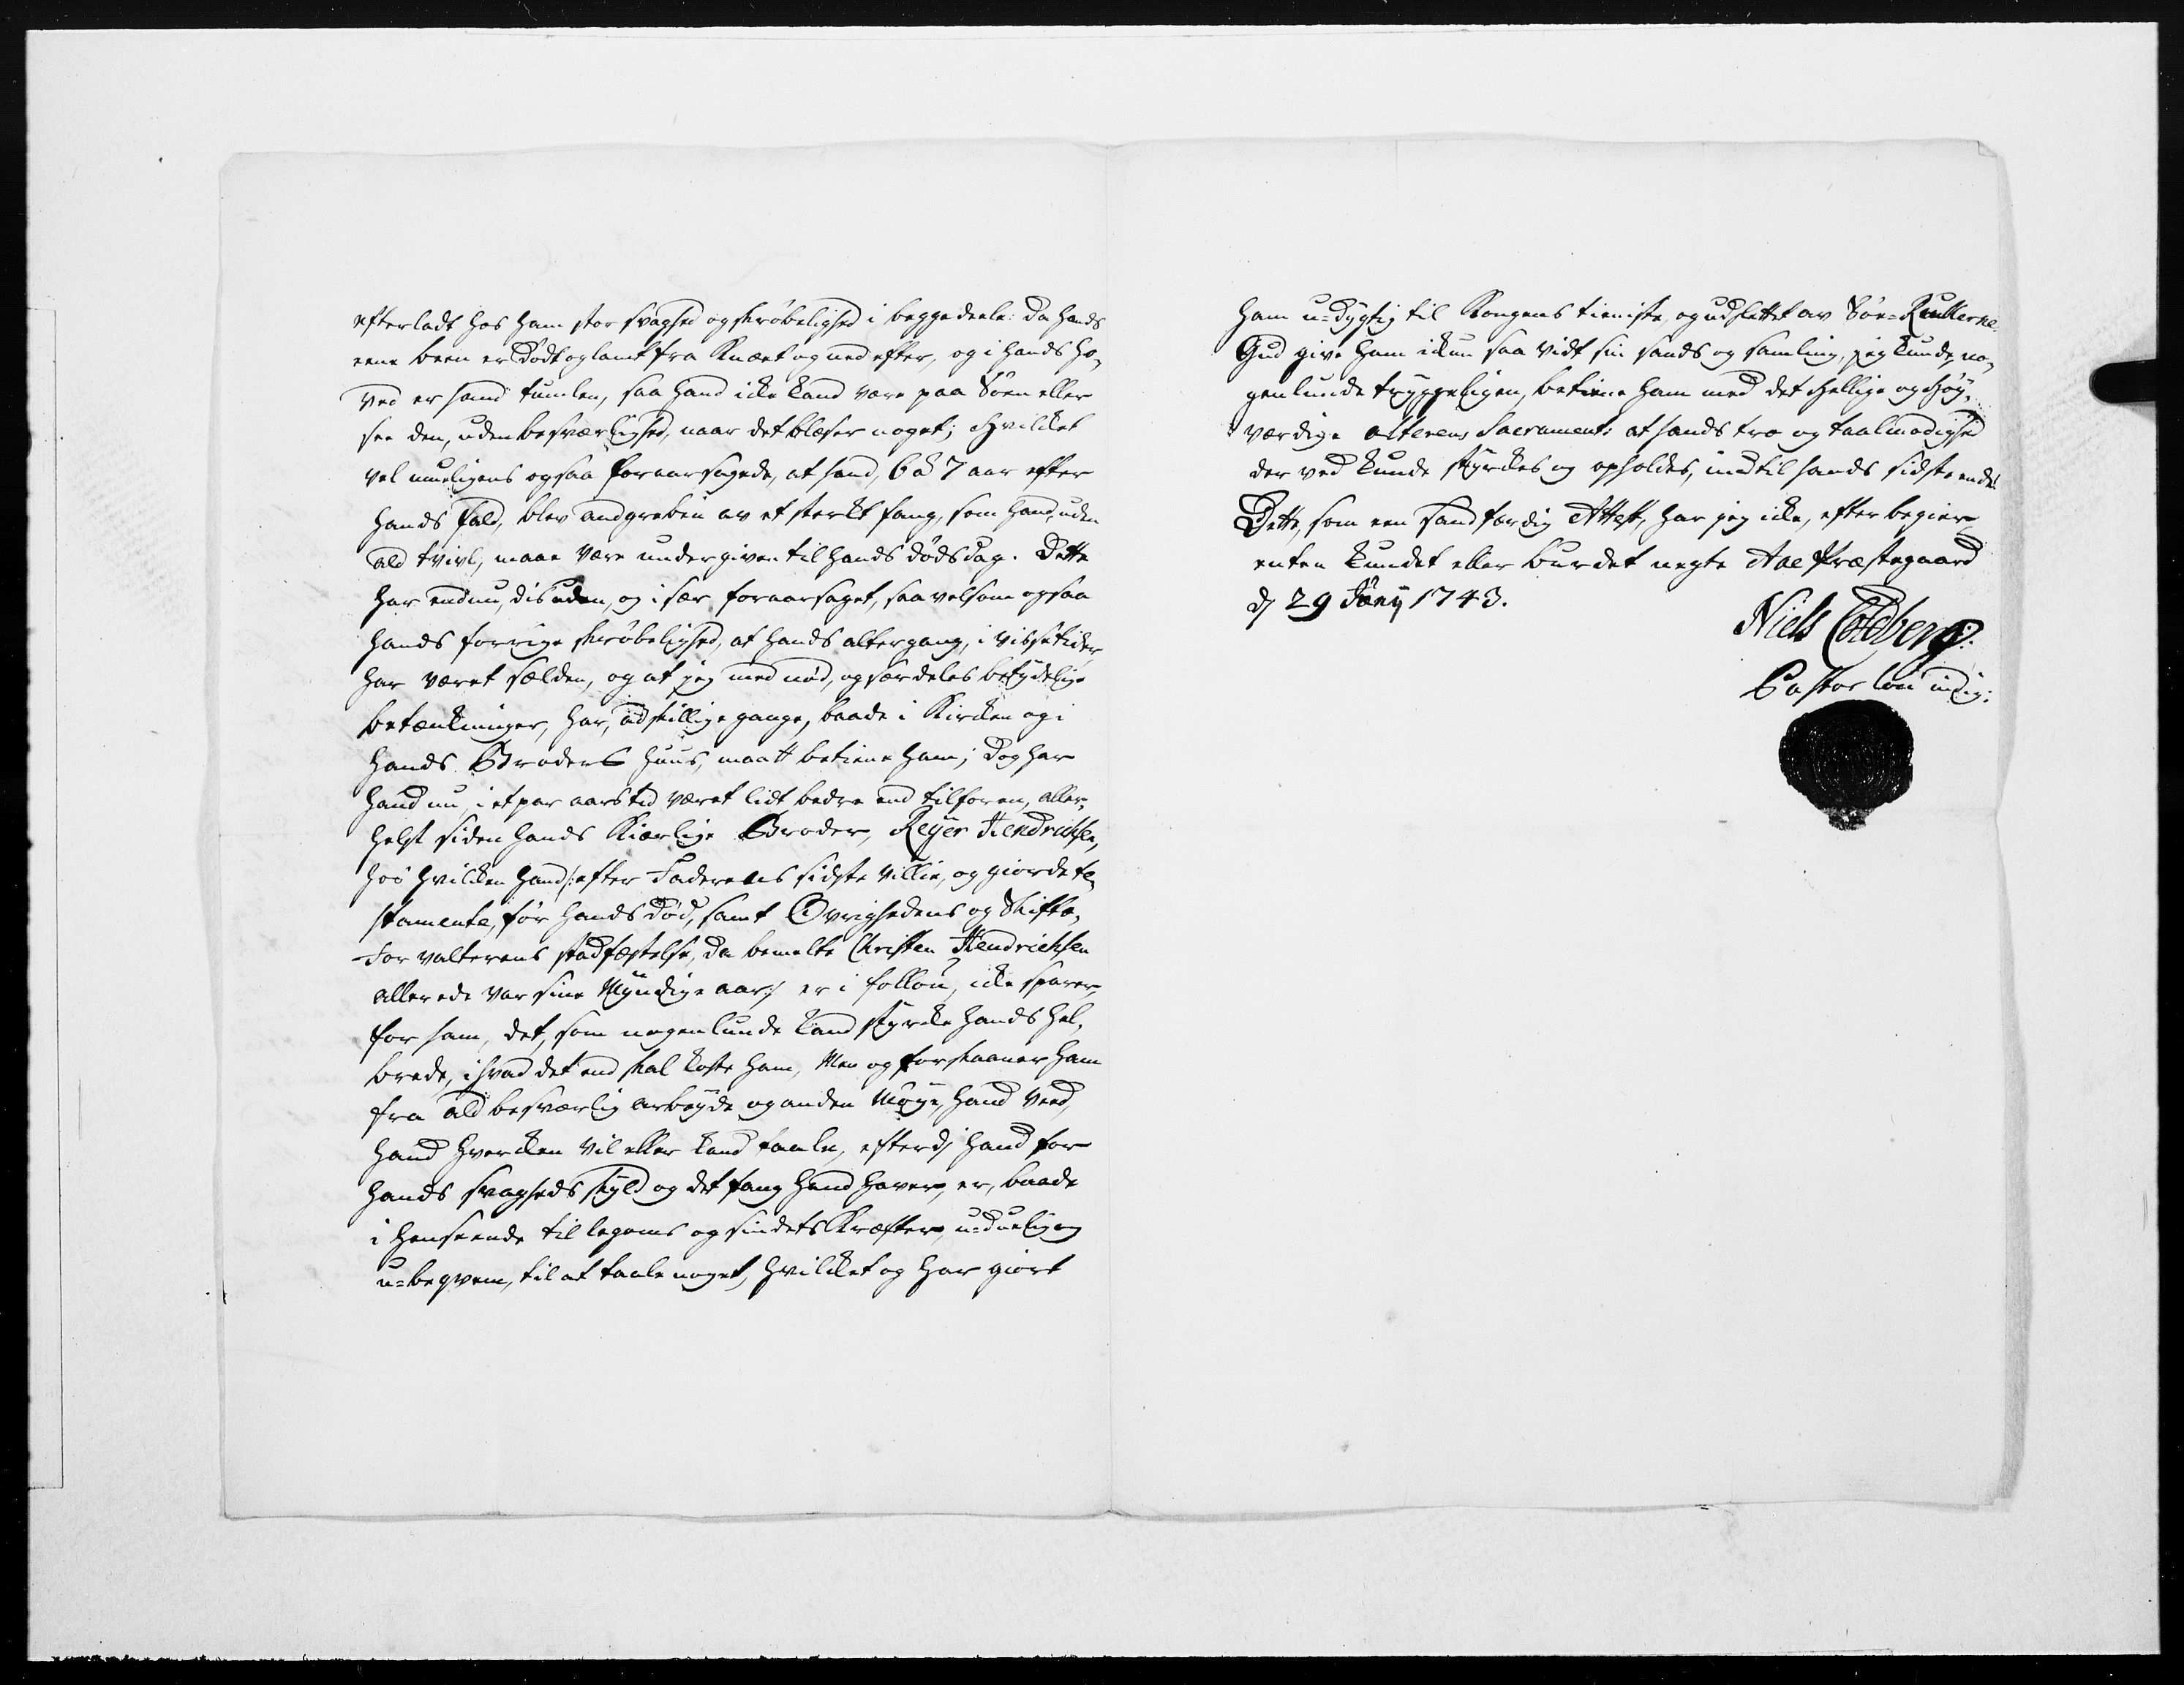 efterladt hos ham stor svaghed og skrøbelighed i begge deele: da hands
eene been er dødt og lamt fra Knæet og ned efter, og i hands Ho-
ved er hand tumlen, saa hand icke kand være paa Søen eller
see den, uden besværlighed, naar det blæser noget; Hvilcket
vel mueligens ogsaa foraarsagede, at hand, 6 à 7 aar efter
hands fald, blev andgreben av et sterckt fang, som hand, uden
ald tvivl, maae være undergiven til hands dødsdag. Dette
har endnu, dis uden, og i sær foraarsaget, saavelsom ogsaa
hands forrige skrøbelighed, at hands altergang, i visse tider
har været sælden, og at jeg med nød, og særdeles betydelige
betænckninger, har, adskillige gange, baade i Kircken og i
hands Broders huus, maatt betiene ham; dog har
hand nu, i et par aars tid været lidt bedre end tilforen, aller-
helst siden hands Kiærlige Broder, Reyer Hendrichsen,
hos hvilcken hand /: efter Faderens sidste villie, og giorde te-
stamente, før hands død, samt Øvrighedens og Skifte-
Forvalterens stadfæstelse, da bemelte Christen Hendrichsen
allerede var sine Myndige aar :/ er i følge, icke sparer
for ham, det, som nogenlunde kand styrcke hands hel-
brede, i hvad det end skal koste ham, Men og forskaaner ham
fra ald besværlig arbeyde og anden Møye, hand veed,
hand hvercken vil eller kand taale, efterdj hand for
hands svagheds skyld og det fang hand haver, er, baade
i henseende til legems og sindets Kræfter, u-duelig og
u-beqvem, til at taale noget, hvilcket og har giort
ham u-dygtig til Kongens tieniste, og udslettet av Søe-Rullerne.
Gud give ham ickun saa vidt sin sands og samling, jeg kunde, no-
genlunde tryggeligen, betiene ham med det Hellige og Høy-
værdige alterens Sacramente at hands troe og taalmodighed
der ved kunde styrckes og opholdes, indtil hands sidste ende.
Dette, som een sandfærdig Attest, har jeg icke, efter begier,
enten kundet eller burdet negte Aae Præstegaard
dj 29 Janij 1743.
Niels Coldberg.
Pastor loci indig: